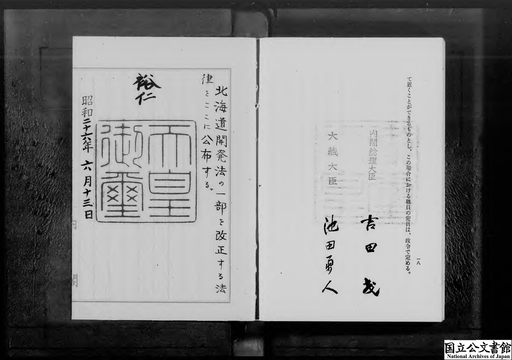 て置くことができるものとし、この場合における職員の定員は、政令で定める。
一八
内閣総理大臣
吉田茂
大蔵大臣
池田勇人
北海道開発法の一部を改正する法
律をここに公布する。
裕仁
天皇
御璽
昭和二十六年六月十三日
国立公文書館
National Archives of Japan